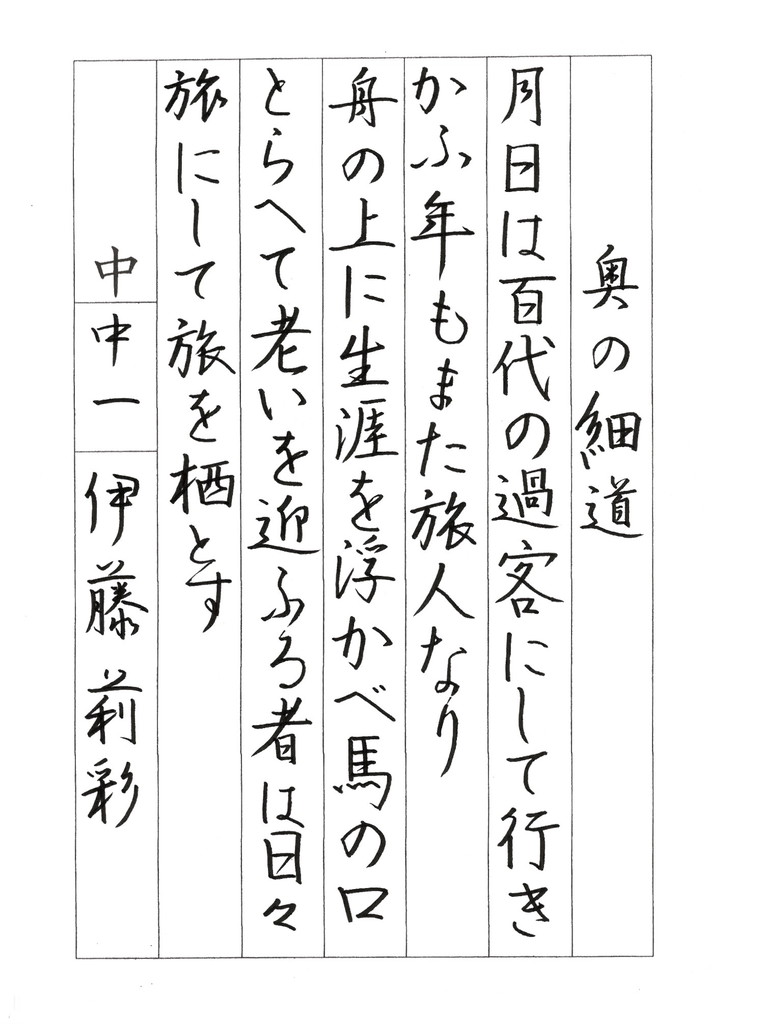 奥の細道
月日は百代の過客にして行き
かふ年もまた旅人なり
舟の上に生涯を浮かべ馬の口
とらへて老いを迎ふる者は日々
旅にして旅を栖とす
中 中一 伊藤莉彩